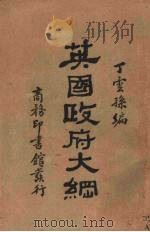 丁雲孫編
英國政府大綱
商務印書館發行